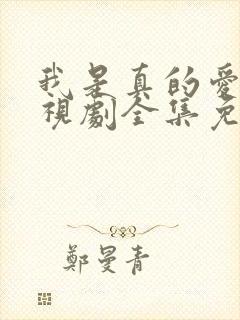 我是真的愛
視劇全集免
鄭曼青